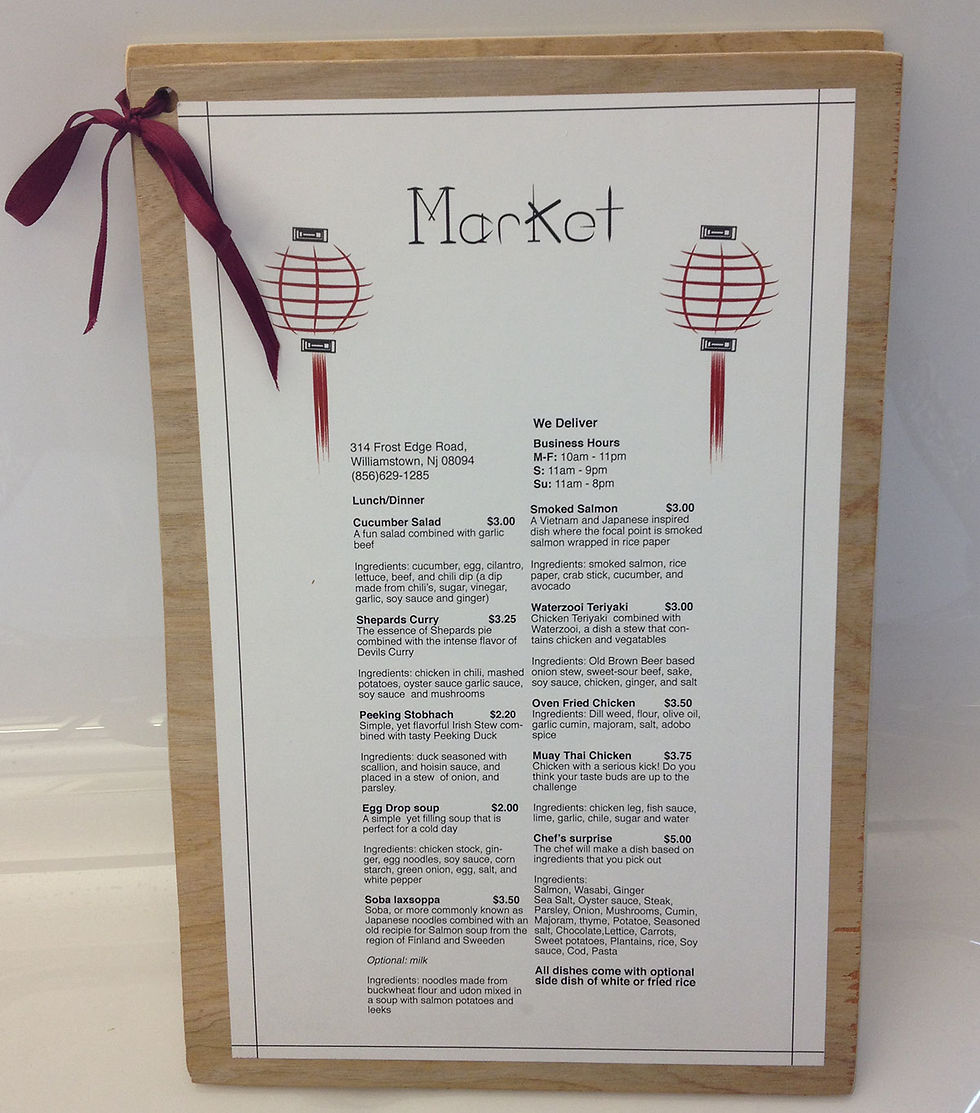 Market
314 Frost Edge Road,
Williamstown, Nj 08094
(856)629-1285
Lunch/Dinner
Cucumber Salad $3.00
A fun salad combined with garlic
beef
Ingredients: cucumber, egg, cilantro,
lettuce, beef, and chili dip (a dip
made from chili's, sugar, vinegar,
garlic, soy sauce and ginger)
Shepards Curry $3.25
The essence of Shepards pie
combined with the intense flavor of
Devils Curry
Ingredients: chicken in chili, mashed
potatoes, oyster sauce garlic sauce,
soy sauce and mushrooms
Peeking Stobhach $2.20
Simple, yet flavorful Irish Stew com-
bined with tasty Peeking Duck
Ingredients: duck seasoned with
scallion, and hoisin sauce, and
placed in a stew of onion, and
parsley.
Egg Drop soup $2.00
A simple yet filling soup that is
perfect for a cold day
Ingredients: chicken stock, gin-
ger, egg noodles, soy sauce, corn
starch, green onion, egg, salt, and
white pepper
Soba laxsoppa $3.50
Soba, or more commonly known as
Japanese noodles combined with an
old recipie for Salmon soup from the
region of Finland and Sweeden
Optional: milk
Ingredients: noodles made from
buckwheat flour and udon mixed in
a soup with salmon potatoes and
leeks
We Deliver
Business Hours
M-F: 10am - 11pm
S: 11am - 9pm
Su: 11am - 8pm
Smoked Salmon $3.00
A Vietnam and Japanese inspired
dish where the focal point is smoked
salmon wrapped in rice paper
Ingredients: smoked salmon, rice
paper, crab stick, cucumber, and
avocado
Waterzooi Teriyaki $3.00
Chicken Teriyaki combined with
Waterzooi, a dish a stew that con-
tains chicken and vegatables
Ingredients: Old Brown Beer based
onion stew, sweet-sour beef, sake,
soy sauce, chicken, ginger, and salt
Oven Fried Chicken $3.50
Ingredients: Dill weed, flour, olive oil,
garlic cumin, majoram, salt, adobo
spice
Muay Thai Chicken $3.75
Chicken with a serious kick! Do you
think your taste buds are up to the
challenge
Ingredients: chicken leg, fish sauce,
lime, garlic, chile, sugar and water
Chef's surprise $5.00
The chef will make a dish based on
ingredients that you pick out
Ingredients:
Salmon, Wasabi, Ginger
Sea Salt, Oyster sauce, Steak,
Parsley, Onion, Mushrooms, Cumin,
Majoram, thyme, Potatoe, Seasoned
salt, Chocolate,Lettice, Carrots,
Sweet potatoes, Plantains, rice, Soy
sauce, Cod, Pasta
All dishes come with optional
side dish of white or fried rice